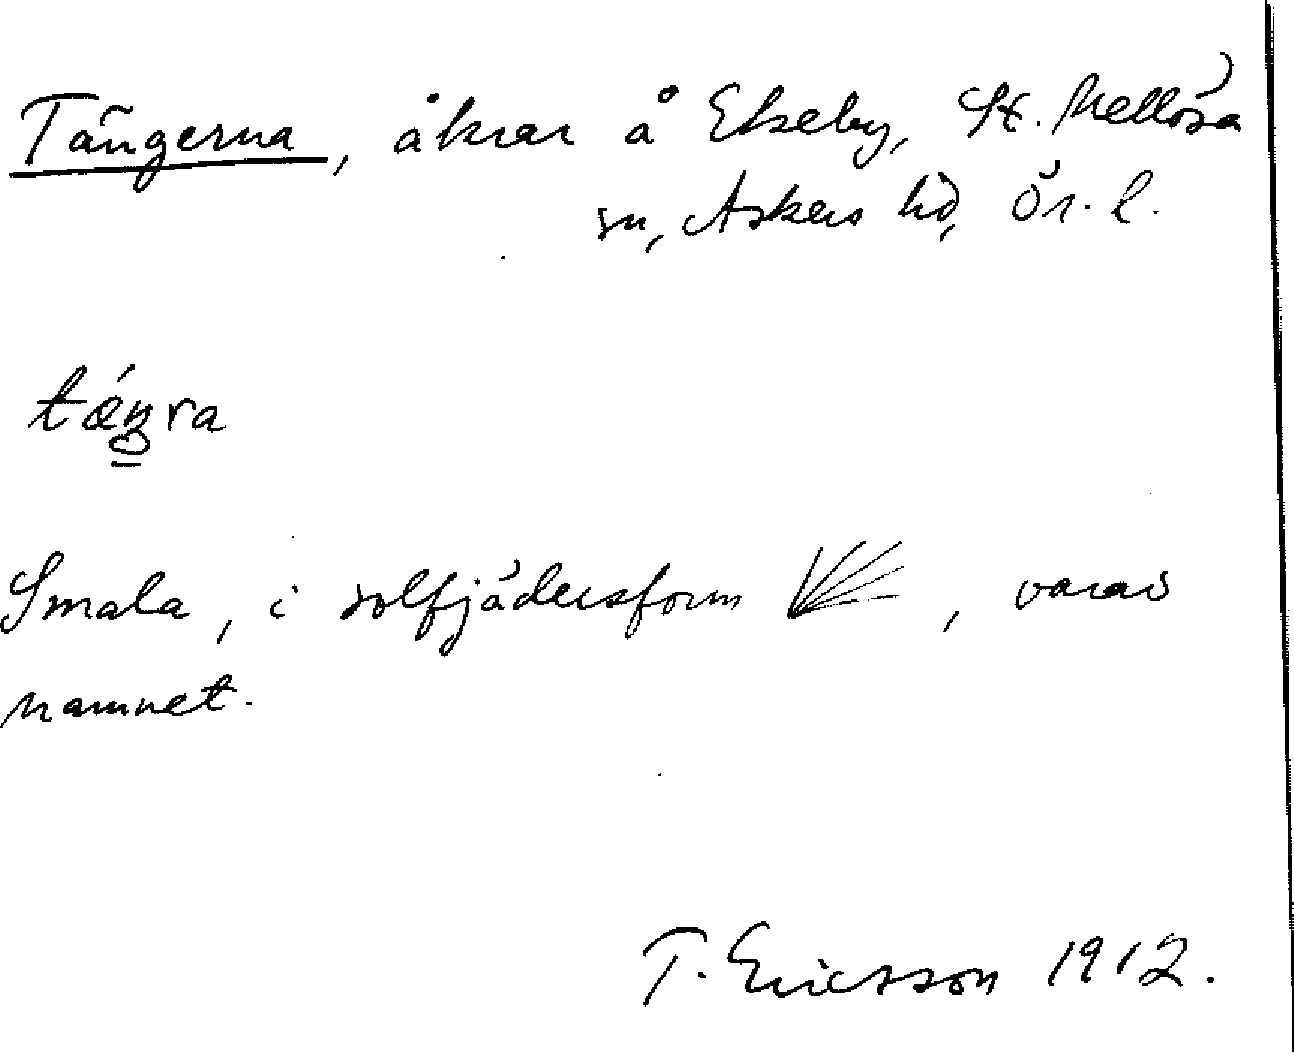 Tängerna, åkrar å Ekeby, St. Mellösa
sn, Askers hd, Ör. l.
tǽŋra
Smala, i solfjädersform , varav
namnet.
T. Ericsson 1912.